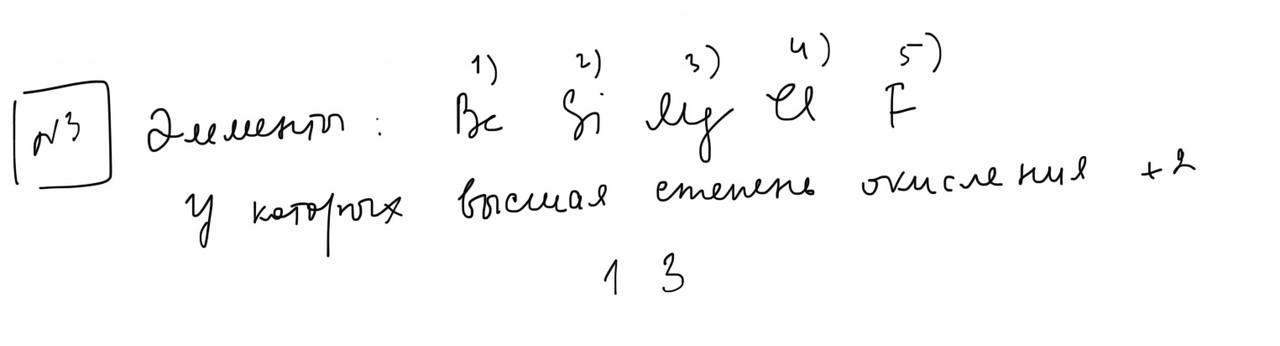 1) 2) 3) 4) 5)
№3 Элементы: Be Si Mg Cl F
У которых высшая степень окисления +2
1 3